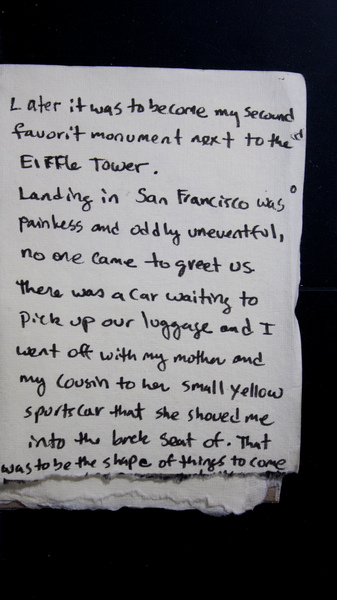 Later it was to become my second
favorit monument next to the
EIFFLE TOWER.
Landing in San Francisco was
painless and oddly uneventful,
no one came to greet us.
There was a car waiting to
pick up our luggage and I
went off with my mother and
my cousin to her small yellow
sportscar that she shoved me
into the back seat of. That
was to be the shape of things to come